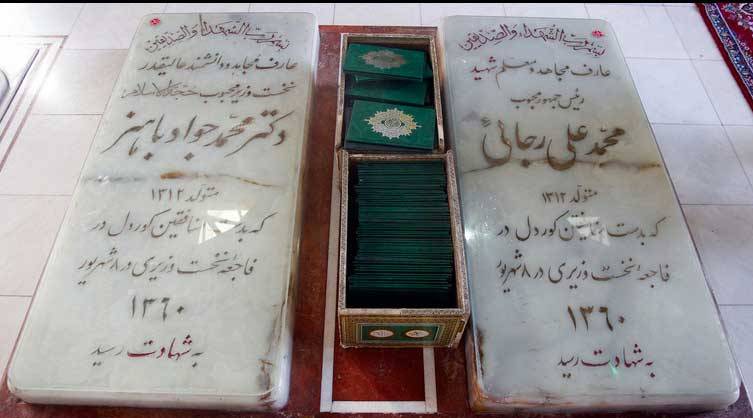 عارف مجاهد و معلم شهید
رئیس جمهور محبوب
محمد علی رجائی
متولد ۱۳۱۲
که بدست منافقین کوردل در
فاجعه نخست وزیری در ۸ شهریور
۱۳۶۰
به شهادت رسید
عارف مجاهد و دانشمند عالیقدر
نخست وزیر محبوب حجةالاسلام
دکتر محمد جواد باهنر
متولد ۱۳۱۲
که بدست منافقین کوردل در
فاجعه نخست وزیری در ۸ شهریور
۱۳۶۰
به شهادت رسید